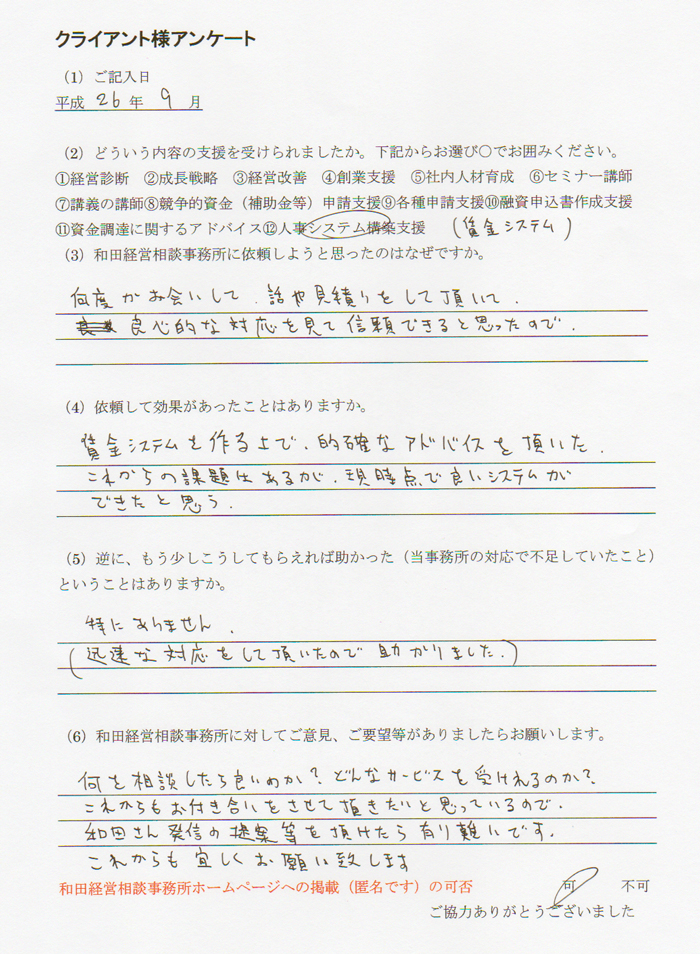 クライアント様アンケート
（1）ご記入日
平成 26 年 9 月
（2）どういう内容の支援を受けられましたか。下記からお選び〇でお囲みください。
①経営診断 ②成長戦略 ③経営改善 ④創業支援 ⑤社内人材育成 ⑥セミナー講師
⑦講義の講師⑧競争的資金（補助金等）申請支援⑨各種申請支援⑩融資申込書作成支援
⑪資金調達に関するアドバイス⑫人事システム構築支援 （賃金システム）
（3）和田経営相談事務所に依頼しようと思ったのはなぜですか。
何度かお会いして、話や見積りをして頂いて、
良心的な対応を見て信頼できると思ったので。
（4）依頼して効果があったことはありますか。
賃金システムを作る上で、的確なアドバイスを頂いた。
これからの課題はあるが、現時点で良いシステムが
できたと思う。
（5）逆に、もう少しこうしてもらえれば助かった（当事務所の対応で不足していたこと）
ということはありますか。
特にありません。
（迅速な対応をして頂いたので助かりました。）
（6）和田経営相談事務所に対してご意見、ご要望等がありましたらお願いします。
何を相談したら良いのか？どんなサービスを受けれるのか？
これからもお付き合いをさせて頂きたいと思っているので、
和田さん発信の提案等を頂けたら有り難いです。
これからも宜しくお願い致します
和田経営相談事務所ホームページへの掲載（匿名です）の可否 可 不可
ご協力ありがとうございました